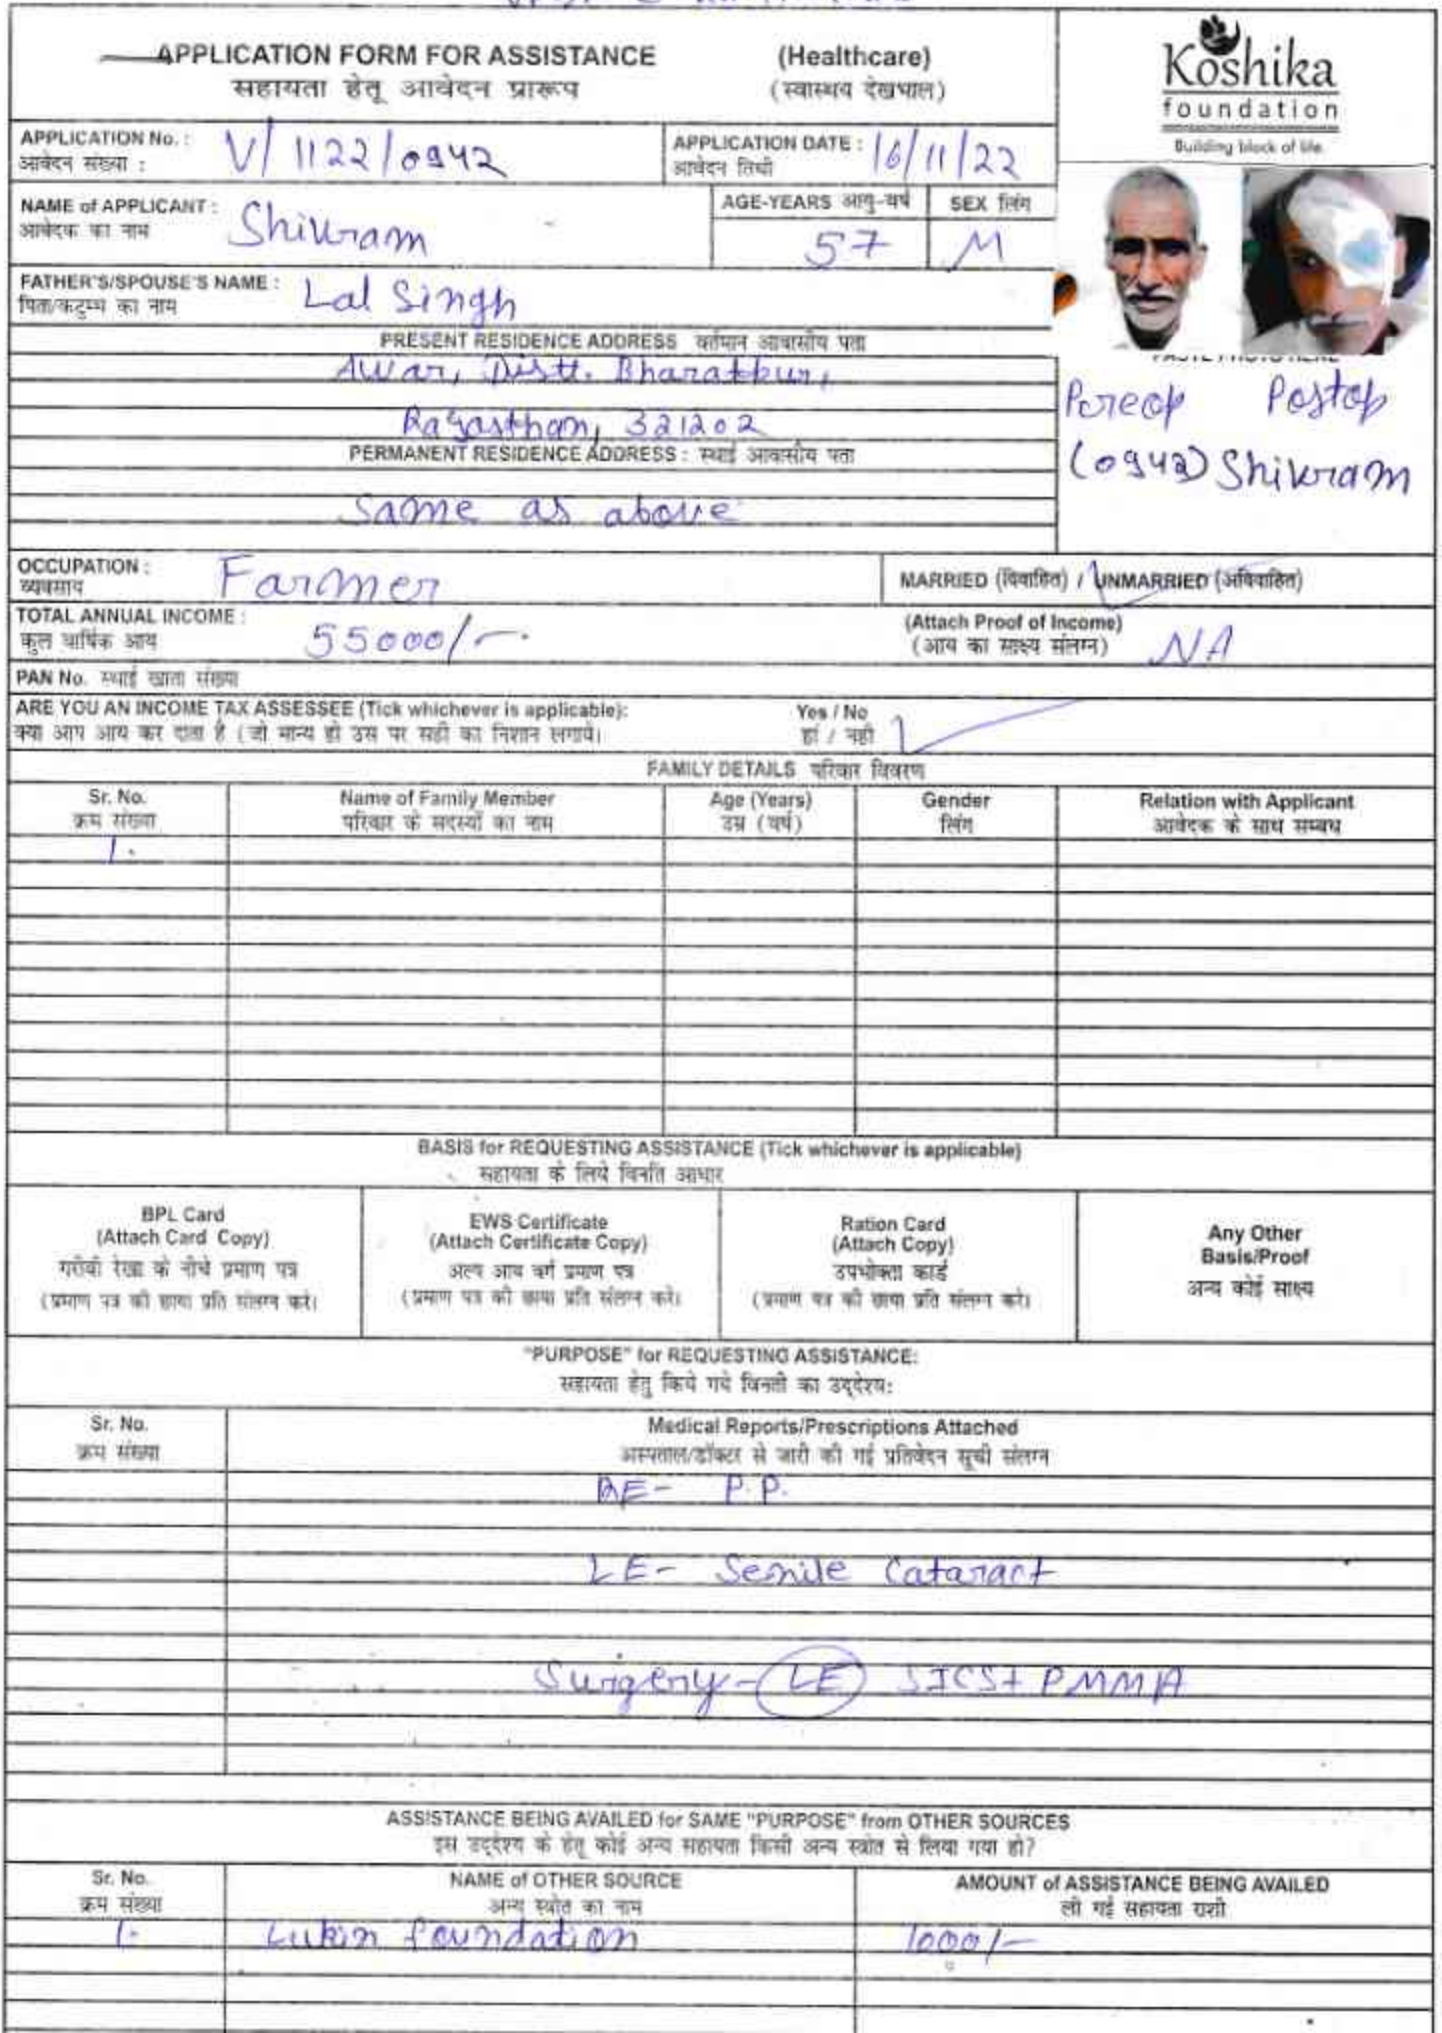 APPLICATION FORM FOR ASSISTANCE (Healthcare)
सहायता हेतू आवेदन प्रारूप (स्वास्थय देखभाल)
Koshika
foundation
Building block of life
APPLICATION No. : V/1122/0942 APPLICATION DATE : 16/11/22
आवेदन संख्या : आवेदन तिथी
NAME of APPLICANT : Shivram AGE-YEARS आयु-वर्ष SEX लिंग
आवेदक का नाम 57 M
FATHER'S/SPOUSE'S NAME : Lal Singh
पिता/कटुम्ब का नाम
PRESENT RESIDENCE ADDRESS वर्तमान आवासीय पता
Awar, Distt. Bharatpur,
Rajasthan, 321202
PERMANENT RESIDENCE ADDRESS : स्थाई आवासीय पता
Same as above
Preop Postop
(0942) Shivram
OCCUPATION : Farmer MARRIED (विवाहित) / UNMARRIED (अविवाहित)
व्यवसाय
TOTAL ANNUAL INCOME : 55000/- (Attach Proof of Income) NA
कुल वार्षिक आय (आय का साक्ष्य संलग्न)
PAN No. स्थाई खाता संख्या
ARE YOU AN INCOME TAX ASSESSEE (Tick whichever is applicable): Yes / No
क्या आप आय कर दाता है (जो मान्य हो उस पर सही का निशान लगाये। हां / नही
FAMILY DETAILS परिवार विवरण
Sr. No. Name of Family Member Age (Years) Gender Relation with Applicant
क्रम संख्या परिवार के सदस्यों का नाम उम्र (वर्ष) लिंग आवेदक के साथ सम्बध
1.
BASIS for REQUESTING ASSISTANCE (Tick whichever is applicable)
सहायता के लिये विनति आधार
BPL Card
(Attach Card Copy)
गरीबी रेखा के नीचे प्रमाण पत्र
(प्रमाण पत्र की छाया प्रति संलग्न करे।
EWS Certificate
(Attach Certificate Copy)
अल्प आय वर्ग प्रमाण पत्र
(प्रमाण पत्र की छाया प्रति संलग्न करे।
Ration Card
(Attach Copy)
उपभोक्ता कार्ड
(प्रमाण पत्र की छाया प्रति संलग्न करे।
Any Other
Basis/Proof
अन्य कोई साक्ष्य
"PURPOSE" for REQUESTING ASSISTANCE:
सहायता हेतु किये गये विनती का उद्देश्य:
Sr. No. Medical Reports/Prescriptions Attached
क्रम संख्या अस्पताल/डॉक्टर से जारी की गई प्रतिवेदन सूची संलग्न
RE- P.P.
LE- Senile Cataract
Surgery- LE SICS+ PMMA
ASSISTANCE BEING AVAILED for SAME "PURPOSE" from OTHER SOURCES
इस उद्देश्य के हेतू कोई अन्य सहायता किसी अन्य स्त्रोत से लिया गया हो?
Sr. No. NAME of OTHER SOURCE AMOUNT of ASSISTANCE BEING AVAILED
क्रम संख्या अन्य स्त्रोत का नाम ली गई सहायता राशी
1. Lukin foundation 1000/-